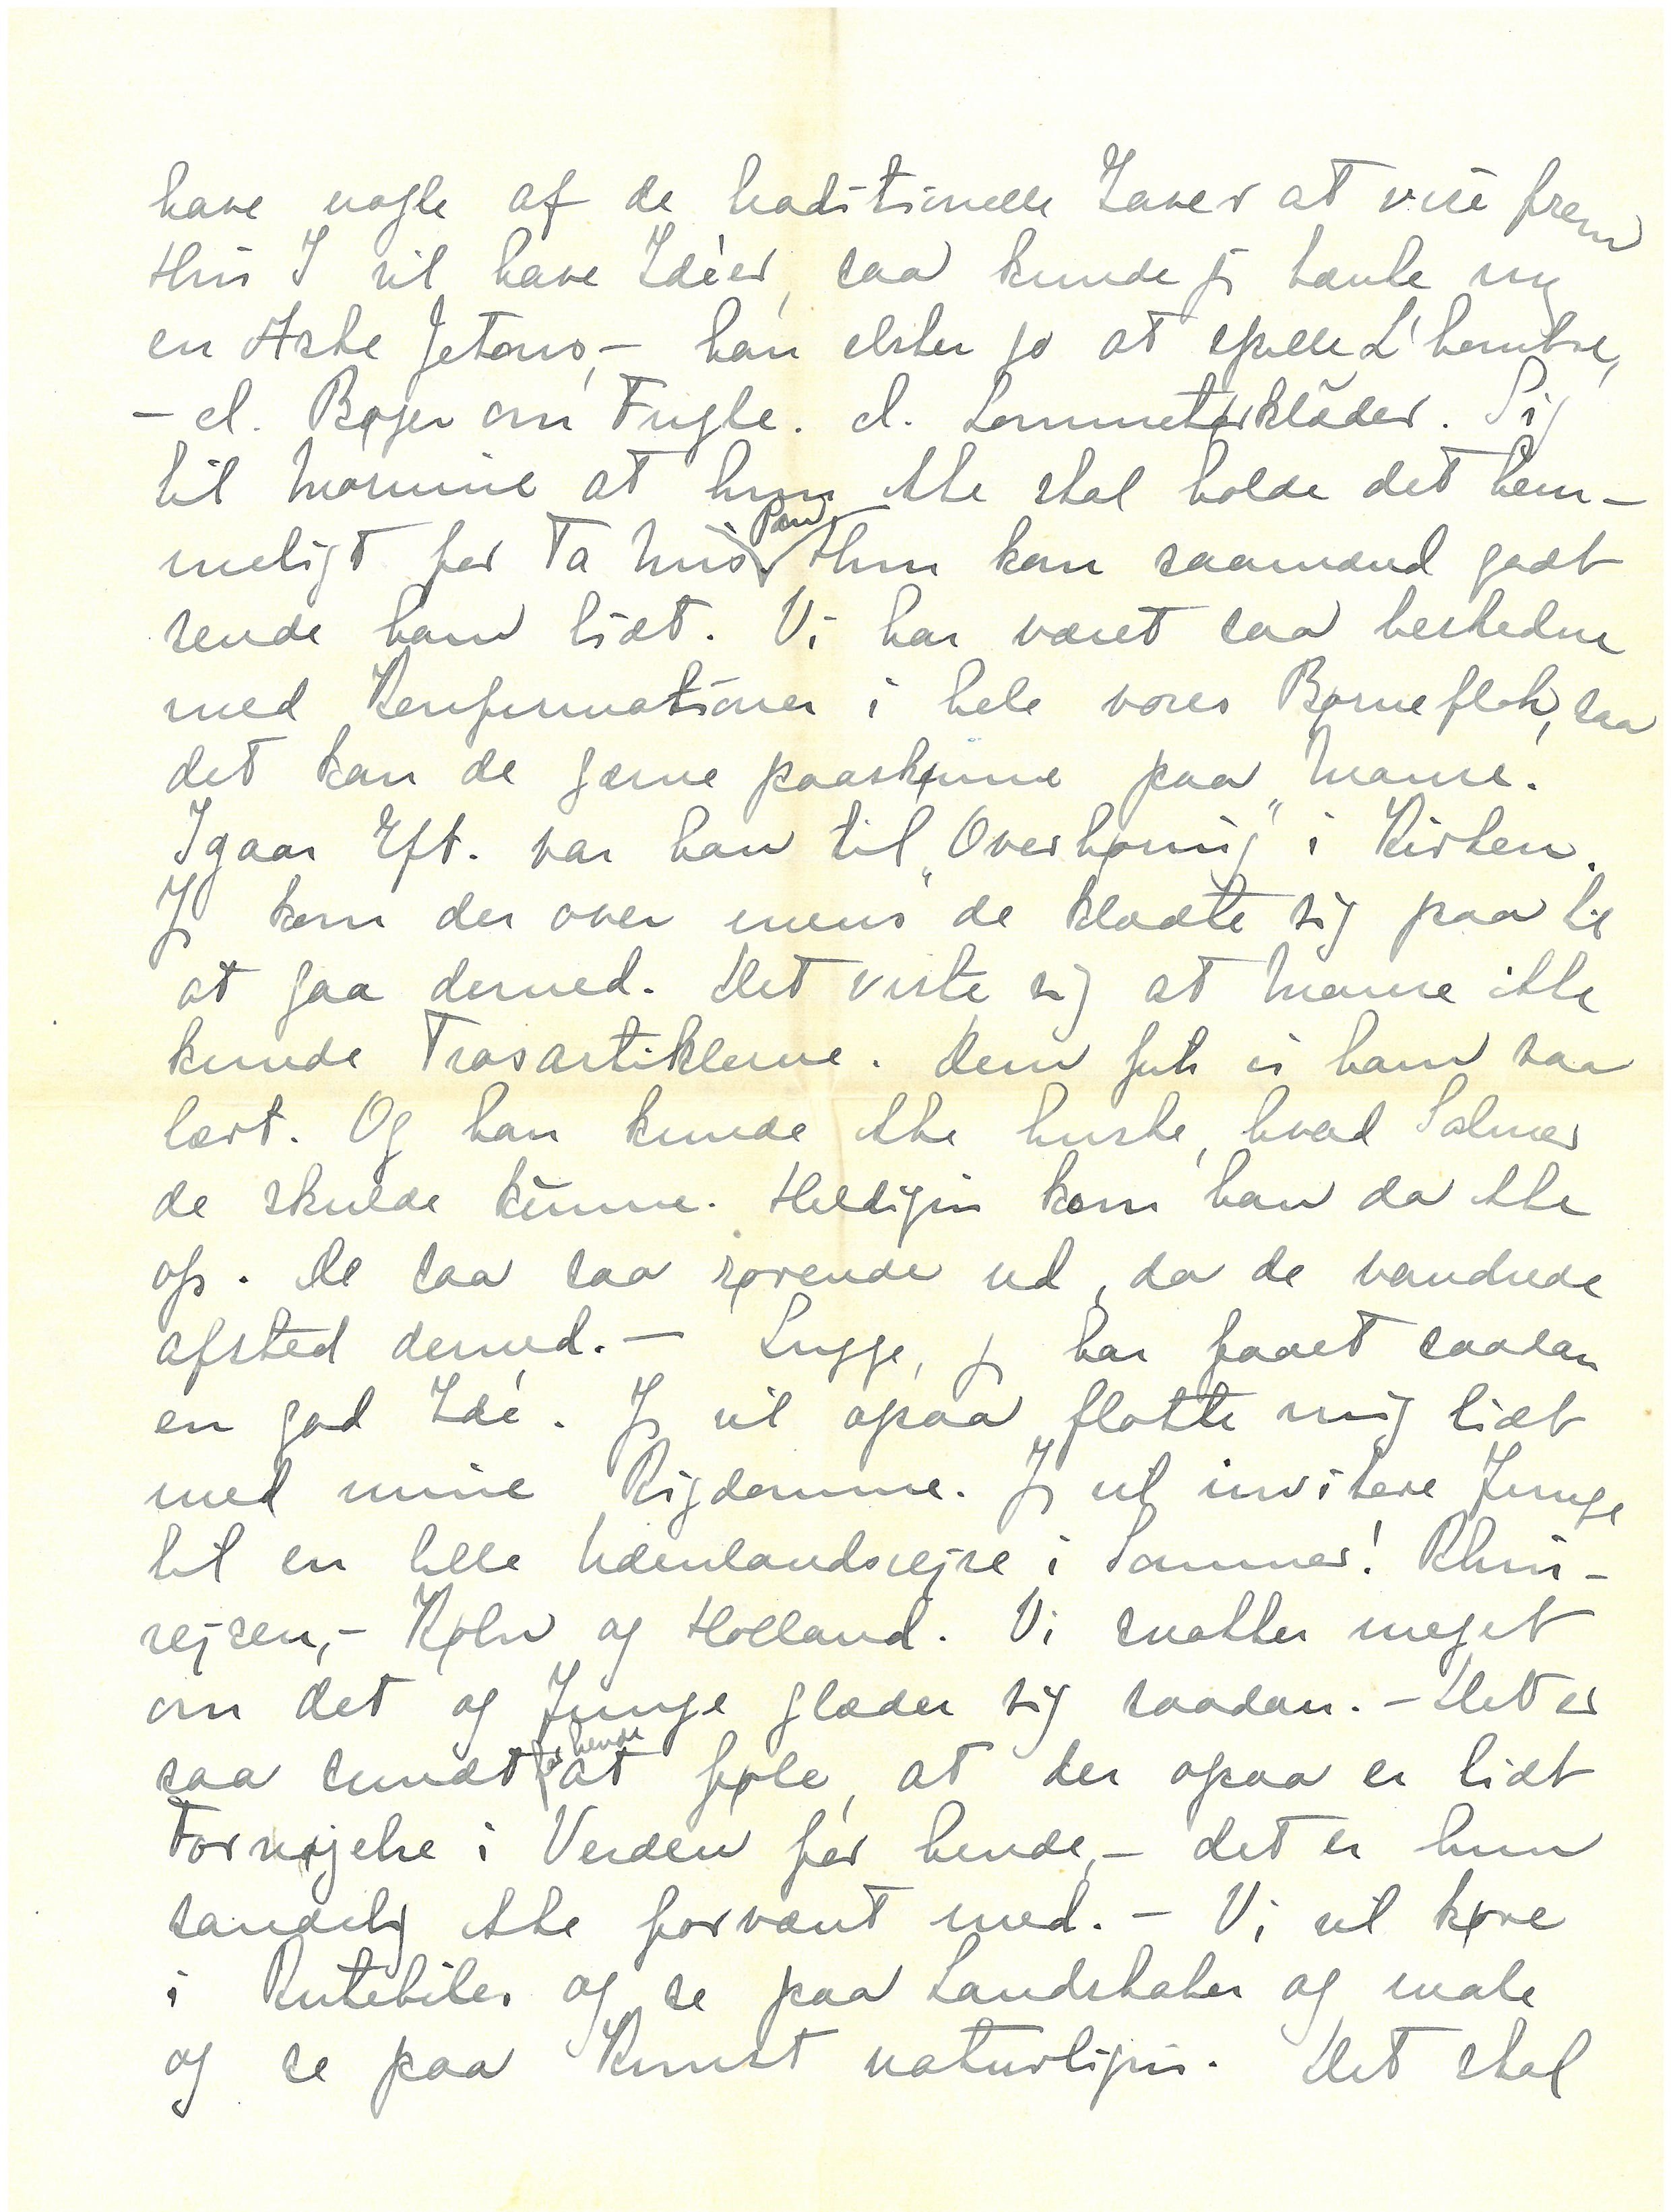 have nogle af de traditionelle Gaver at vise frem
Hvis I vil have Idéer, saa kunde jeg tænke mig
en Æske Jetons, – han elsker jo at spille L'hombre,
– el. Bøger om Fugle. el. Lommetørklæder. Sig
til Mornine at hun ikke skal holde det hem-
meligt for Ta Mis. Pan Hun kan saamænd godt
sende ham lidt. Vi har været saa beskedne
med Konfirmationer i hele vores Børneflok, saa
det kan de gerne paaskønne paa Manse.
Igaar Eft. var han til „Overhøring" i Kirken.
Jeg kom der over mens de klædte sig paa til
at gaa derned. Det viste sig at Manse ikke
kunde Trosartiklerne. Dem fik vi ham saa
lært. Og han kunde ikke huske, hvad Salmer
de skulde kunne. Heldigvis kom han da ikke
op. De saa saa rørende ud, da de vandrede
afsted derned. – Lugge, jeg har faaet saadan
en god Idé. Jeg vil ogsaa flotte mig lidt
med mine Rigdomme. Jeg vil invitere Junge
til en lille Udenlandsrejse i Sommer! Rhin-
rejsen, – Køln og Holland. Vi snakker meget
om det og Junge glæder sig saadan. – Det er
saa sundt for hende at føle, at der ogsaa er lidt
Fornøjelse i Verden for hende, – det er hun
sandelig ikke forvænt med. – Vi vil køre
i Rutebiler og se paa Landskaber og male
og se paa Kunst naturligvis. Det skal